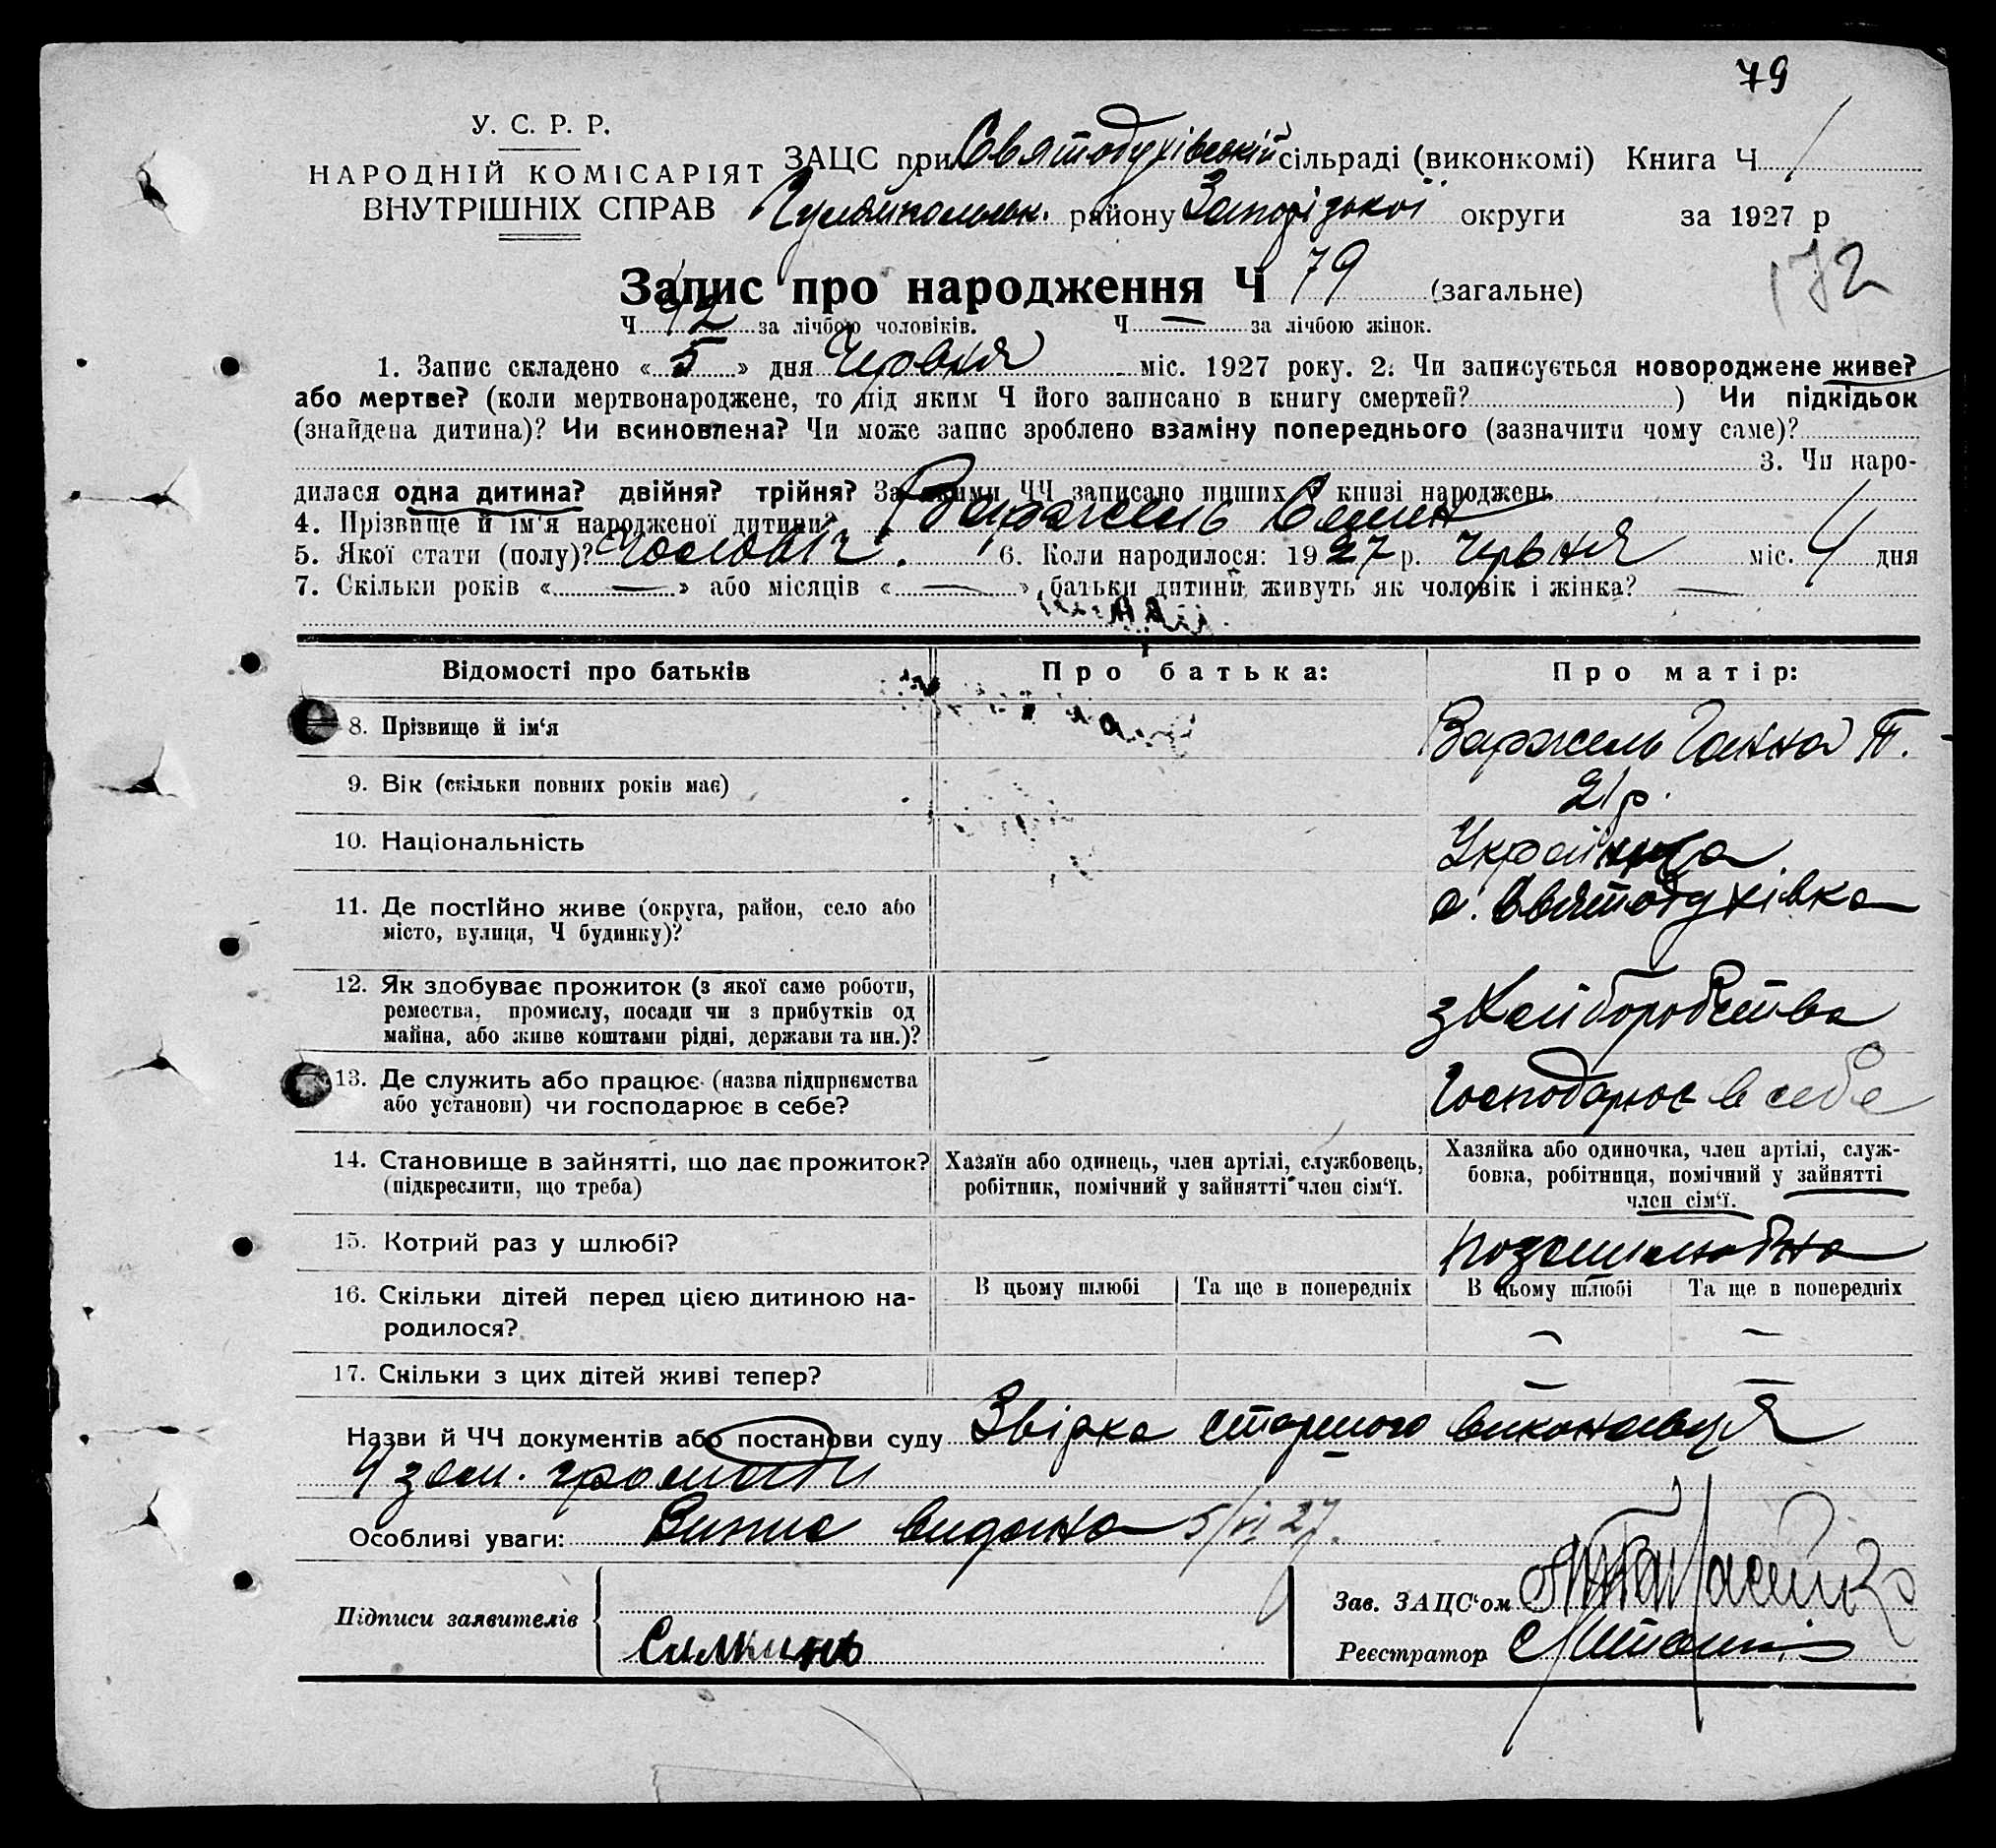 79
У. С. Р. Р.
НАРОДНІЙ КОМІСАРІЯТ
ВНУТРІШНІХ СПРАВ
ЗАЦС при Святодухівській сільраді (виконкомі) Книга Ч 1
Гуляйпольськ. району Запорізької округи за 1927 р
172
Запис про народження Ч 79 (загальне)
Ч 42 за лічбою чоловіків. Ч — за лічбою жінок.
1. Запис складено « 5 » дня Червня міс. 1927 року. 2. Чи записується новороджене живе?
або мертве? (коли мертвонароджене, то під яким Ч його записано в книгу смертей? ) Чи підкідьок
(знайдена дитина)? Чи всиновлена? Чи може запис зроблено взаміну попереднього (зазначити чому саме)?
3. Чи наро-
дилася одна дитина? двійня? трійня? За якими ЧЧ записано инших в книзі народжень
4. Прізвище й ім'я народженої дитини? Варжель
5. Якої стати (полу)? Чоловіч. 6. Коли народилося: 1927 р. Червня міс. 4 дня
7. Скільки років « — » або місяців « — » батьки дитини живуть як чоловік і жінка? —
Відомості про батьків Про батька: Про матір:
8. Прізвище й ім‘я Варжель Ганна П.
9. Вік (скільки повних років має) 21 р.
10. Національність Українка
11. Де постійно живе (округа, район, село або
місто, вулиця, Ч будинку)? с. Святодухівка
12. Як здобуває прожиток (з якої саме роботи,
ремества, промислу, посади чи з прибутків од
майна, або живе коштами рідні, держави та ин.)? з Хлиборобства
13. Де служить або працює (назва підприємства
або установи) чи господарює в себе? Господарює в себе
14. Становище в зайнятті, що дає прожиток?
(підкреслити, що треба)
Хазяїн або одинець, член артілі, службовець,
робітник, помічний у зайнятті член сім‘ї.
Хазяйка або одиночка, член артілі, служ-
бовка, робітниця, помічний у зайнятті
член сім‘ї.
15. Котрий раз у шлюбі? позашлюбна
16. Скільки дітей перед цією дитиною на-
родилося?
В цьому шлюбі Та ще в попередніх В цьому шлюбі Та ще в попередніх
— —
17. Скільки з цих дітей живі тепер? — —
Назви й ЧЧ документів або постанови суду Звірка старшого виконавця
Ч зем. громади
Особливі уваги: Випис видана 5/VI 27.
Підписи заявителів
Зав. ЗАЦС‘ом
Реєстратор